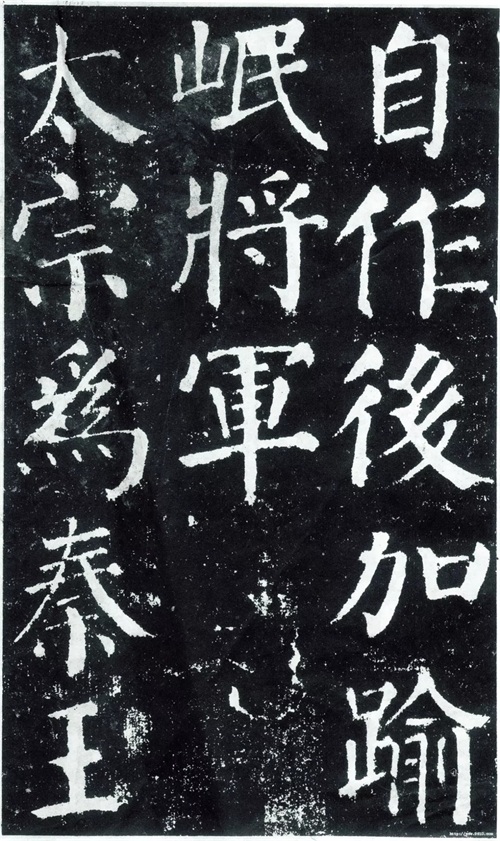 自作後加踰
岷將軍
太宗爲秦王